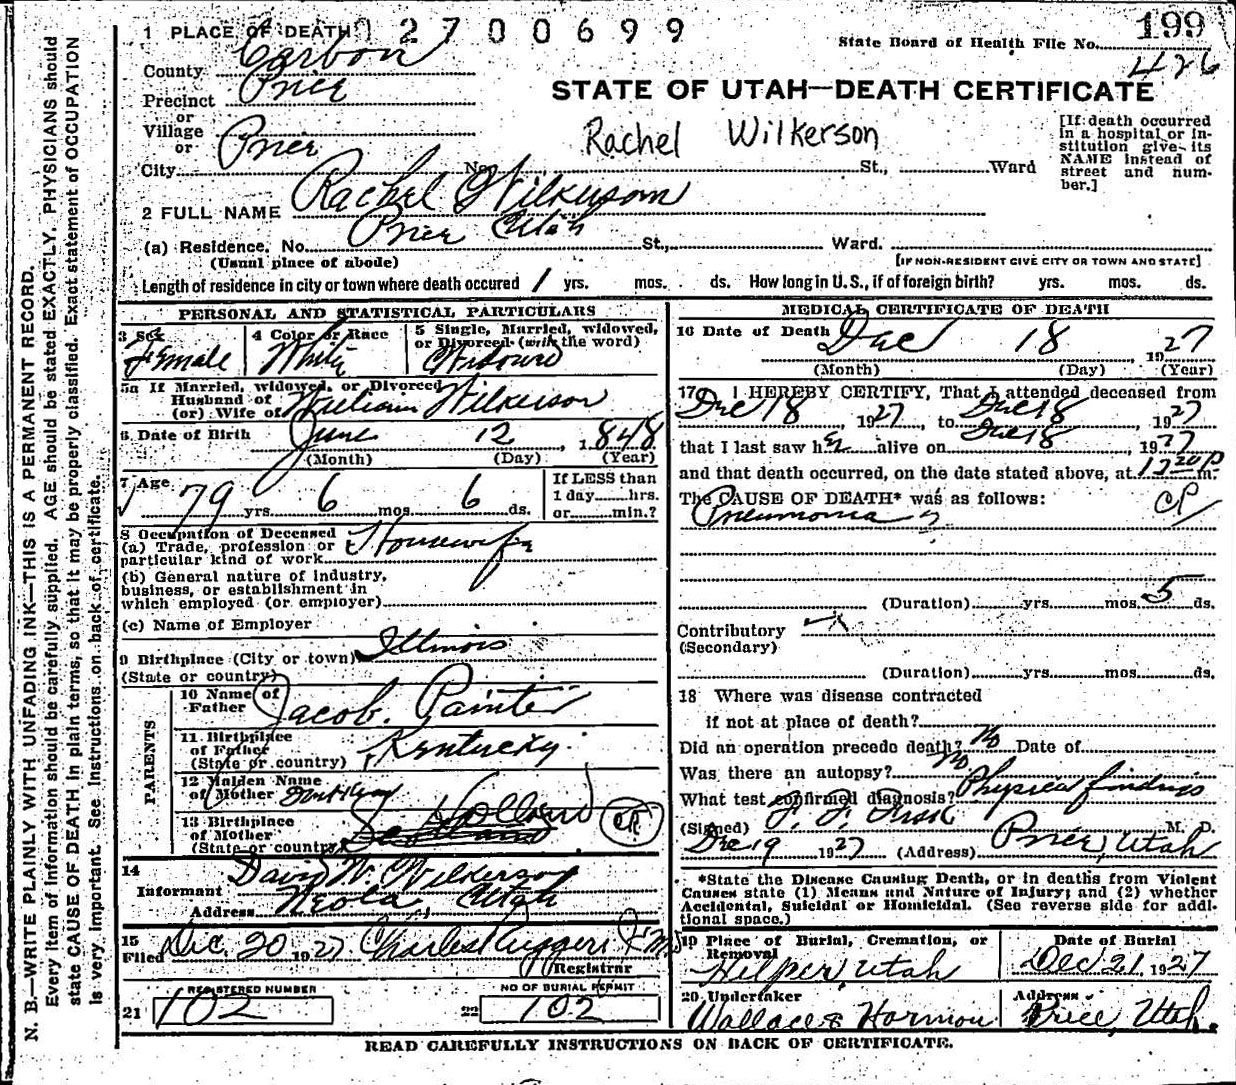 1 PLACE OF DEATH 2700699
State Board of Health File No. 199
426
County Carbon
Precinct Price
or
Village
or
City Price No. St., Ward
STATE OF UTAH—DEATH CERTIFICATE
Rachel Wilkerson
[If death occurred
in a hospital or in-
stitution give its
NAME instead of
street and num-
ber.]
2 FULL NAME Rachel Wilkerson
(a) Residence. No. Price Utah St., Ward.
(Usual place of abode)
[IF NON-RESIDENT GIVE CITY OR TOWN AND STATE]
Length of residence in city or town where death occured 1 yrs. mos. ds. How long in U.S., if of foreign birth? yrs. mos. ds.
PERSONAL AND STATISTICAL PARTICULARS
3 Sex Female
4 Color or Race White
5 Single, Married, widowed,
or Divorced (write the word)
Widowed
5a If Married, widowed, or Divorced
Husband of
(or) Wife of William Wilkerson
6 Date of Birth June 12, 1848
(Month) (Day) (Year)
7 Age 79 yrs. 6 mos. 6 ds.
If LESS than
1 day hrs.
or min.?
8 Occupation of Deceased
(a) Trade, profession or
particular kind of work Housewife
(b) General nature of industry,
business, or establishment in
which employed (or employer)
(c) Name of Employer
9 Birthplace (City or town) Illinois
(State or country)
PARENTS
10 Name of
Father Jacob. Painter
11 Birthplace
of Father
(State or country) Kentucky.
12 Maiden Name
of Mother Dont Know
13 Birthplace
of Mother
(State or country) Holland CR
14
Informant David W. Wilkerson
Address Neola, Utah
15
Filed Dec. 20 1927 Charles Ruggeri
Registrar
REGISTERED NUMBER
21 102
NO OF BURIAL PERMIT
22 102
MEDICAL CERTIFICATE OF DEATH
16 Date of Death Dec 18, 1927
(Month) (Day) (Year)
17 I HEREBY CERTIFY, That I attended deceased from
Dec 18, 1927, to Dec 18, 1927
that I last saw her alive on Dec 18, 1927
and that death occurred, on the date stated above, at 1220 P m.
The CAUSE OF DEATH* was as follows:
Pneumonia
(Duration) yrs. mos. 5 ds.
Contributory
(Secondary)
(Duration) yrs. mos. ds.
18 Where was disease contracted
if not at place of death?
Did an operation precede death? No Date of
Was there an autopsy? No
What test confirmed diagnosis? Physical findings
(Signed) F. F. Fisk M. D.
Dec 19 1927 (Address) Price, Utah
*State the Disease Causing Death, or in deaths from Violent
Causes state (1) Means and Nature of Injury; and (2) whether
Accidental, Suicidal or Homicidal. (See reverse side for addi-
tional space.)
19 Place of Burial, Cremation, or
Removal
Helper, Utah
Date of Burial
Dec 21 1927
20 Undertaker
Wallace & Harmon
Address
Price, Utah.
READ CAREFULLY INSTRUCTIONS ON BACK OF CERTIFICATE.
N. B.—WRITE PLAINLY WITH UNFADING INK—THIS IS A PERMANENT RECORD.
Every item of information should be carefully supplied. AGE should be stated EXACTLY. PHYSICIANS should
state CAUSE OF DEATH in plain terms, so that it may be properly classified. Exact statement of OCCUPATION
is very important. See Instructions on back of certificate.